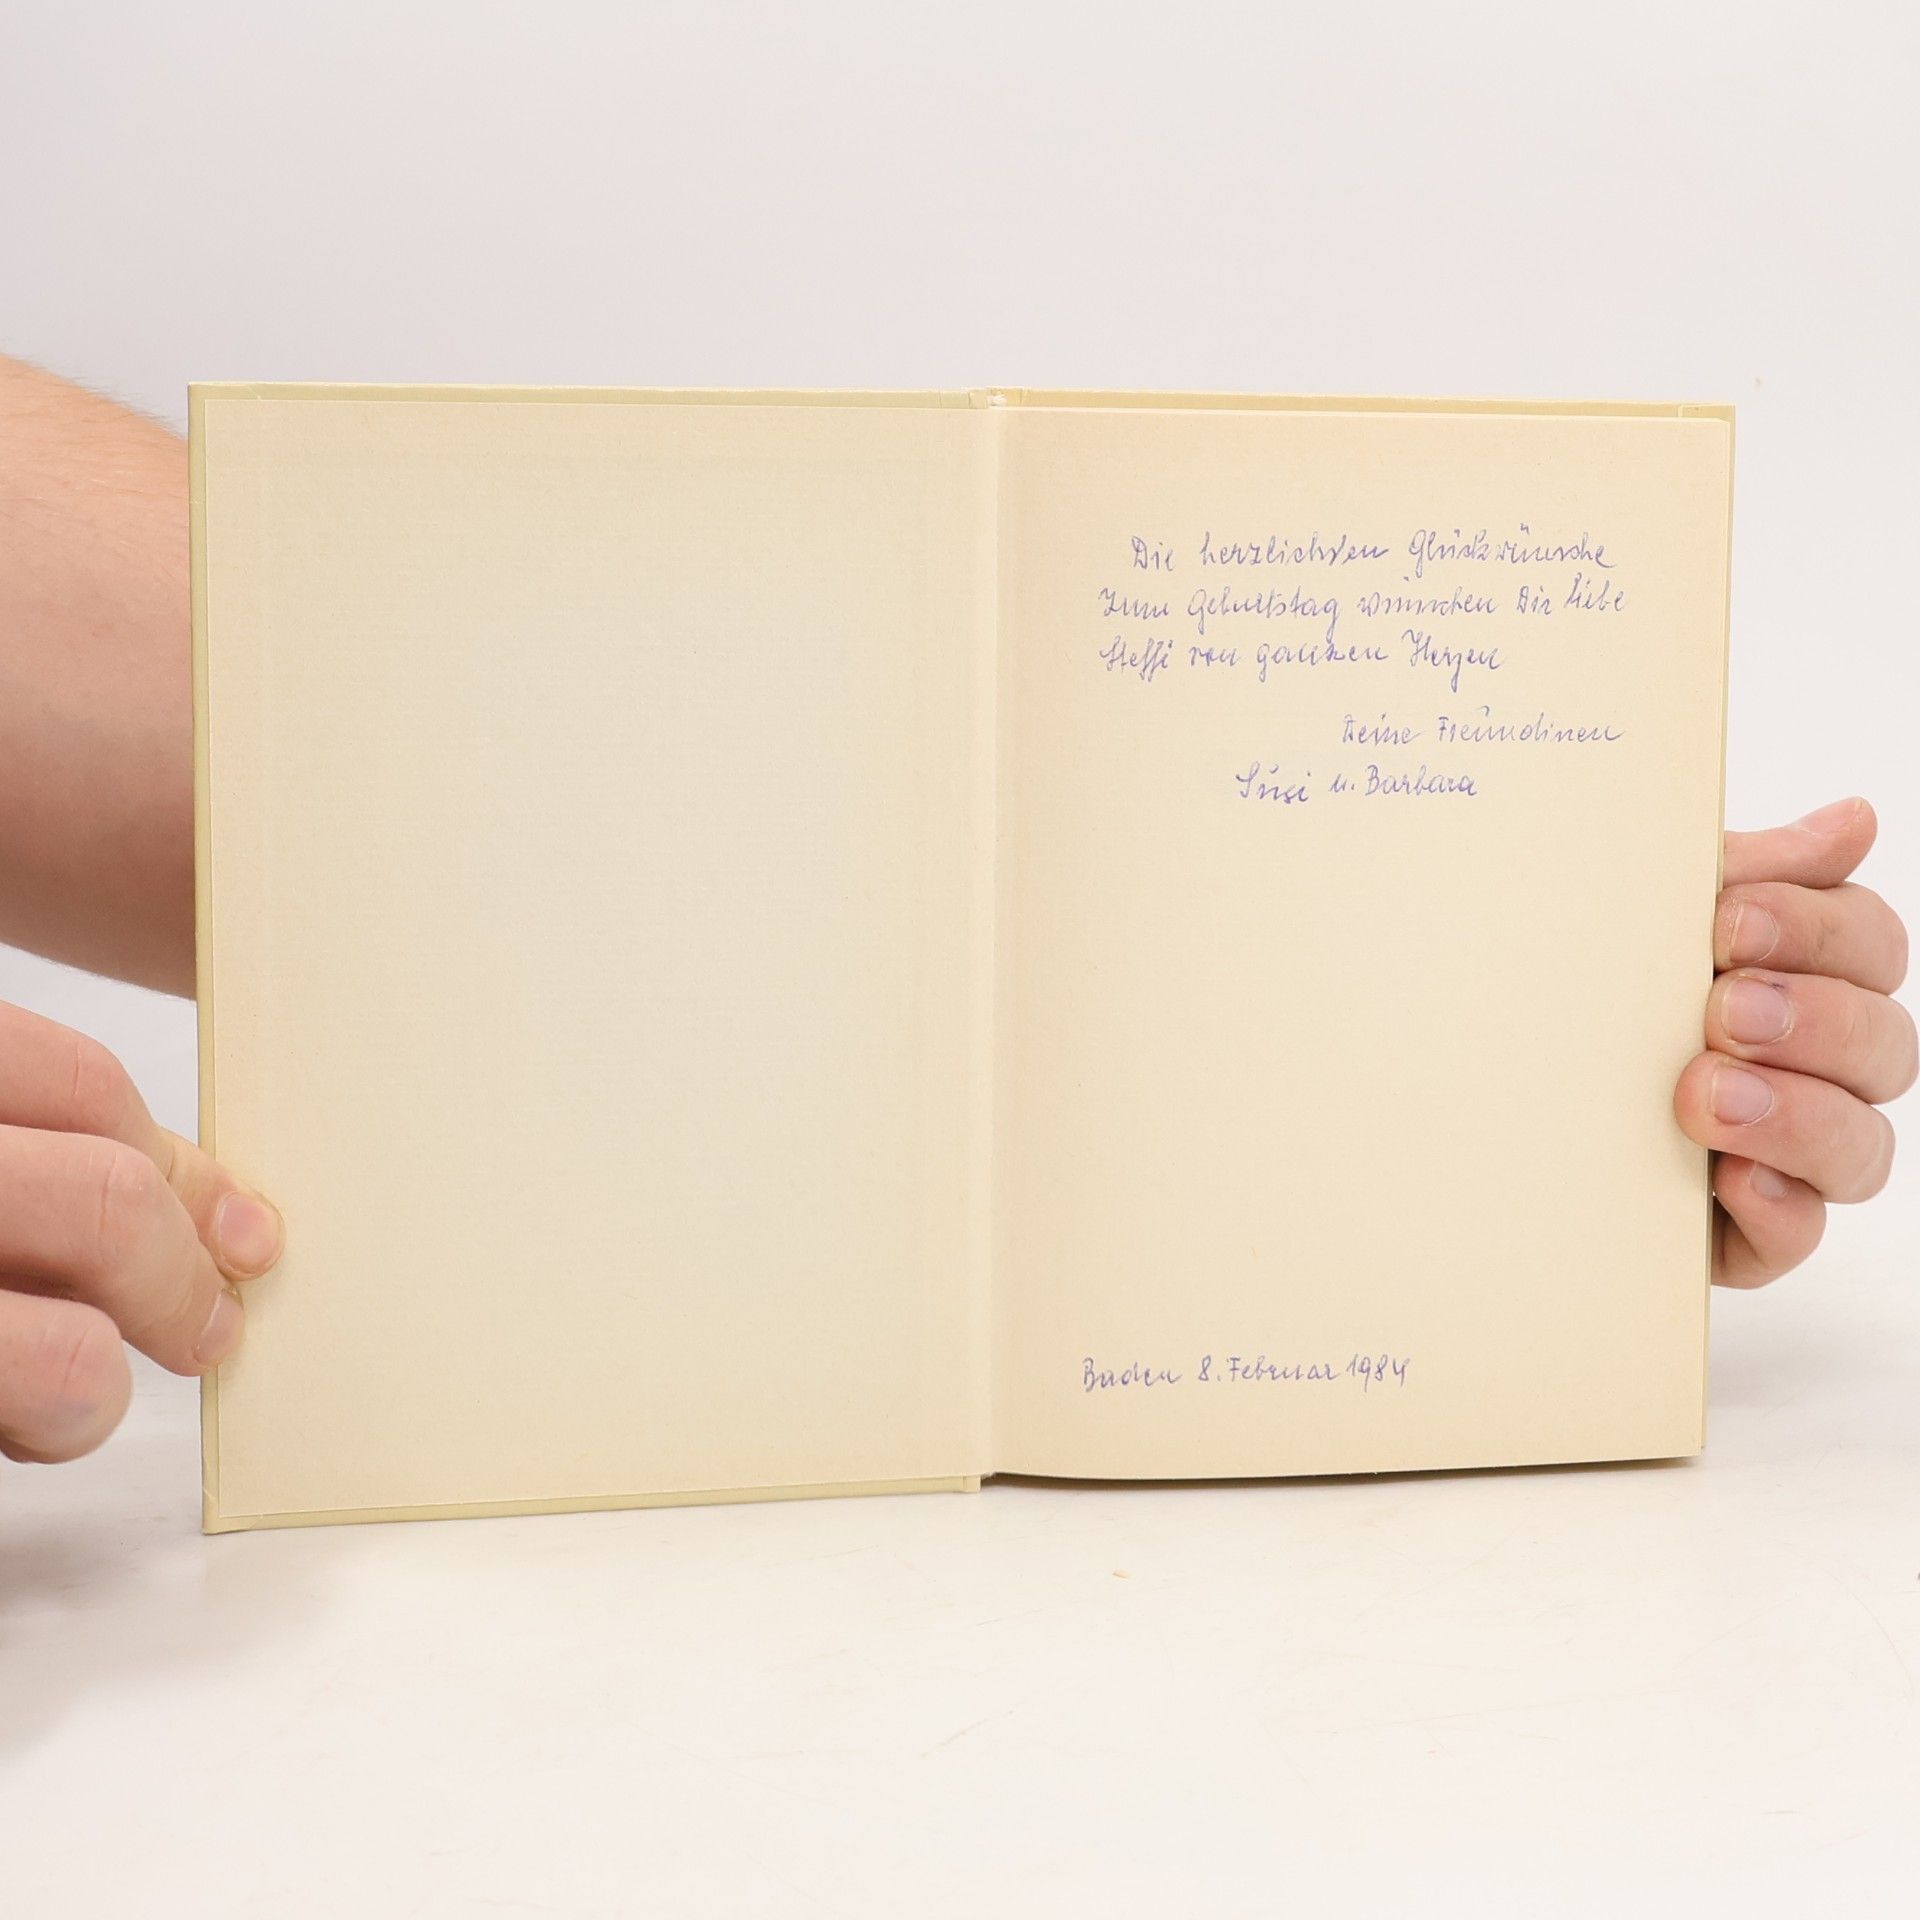 Die herzlichsten Glückwünsche
zum Geburtstag wünschen Dir liebe
Steffi von ganzen Herzen
Deine Freundinen
Susi u. Barbara
Baden 8. Februar 1984